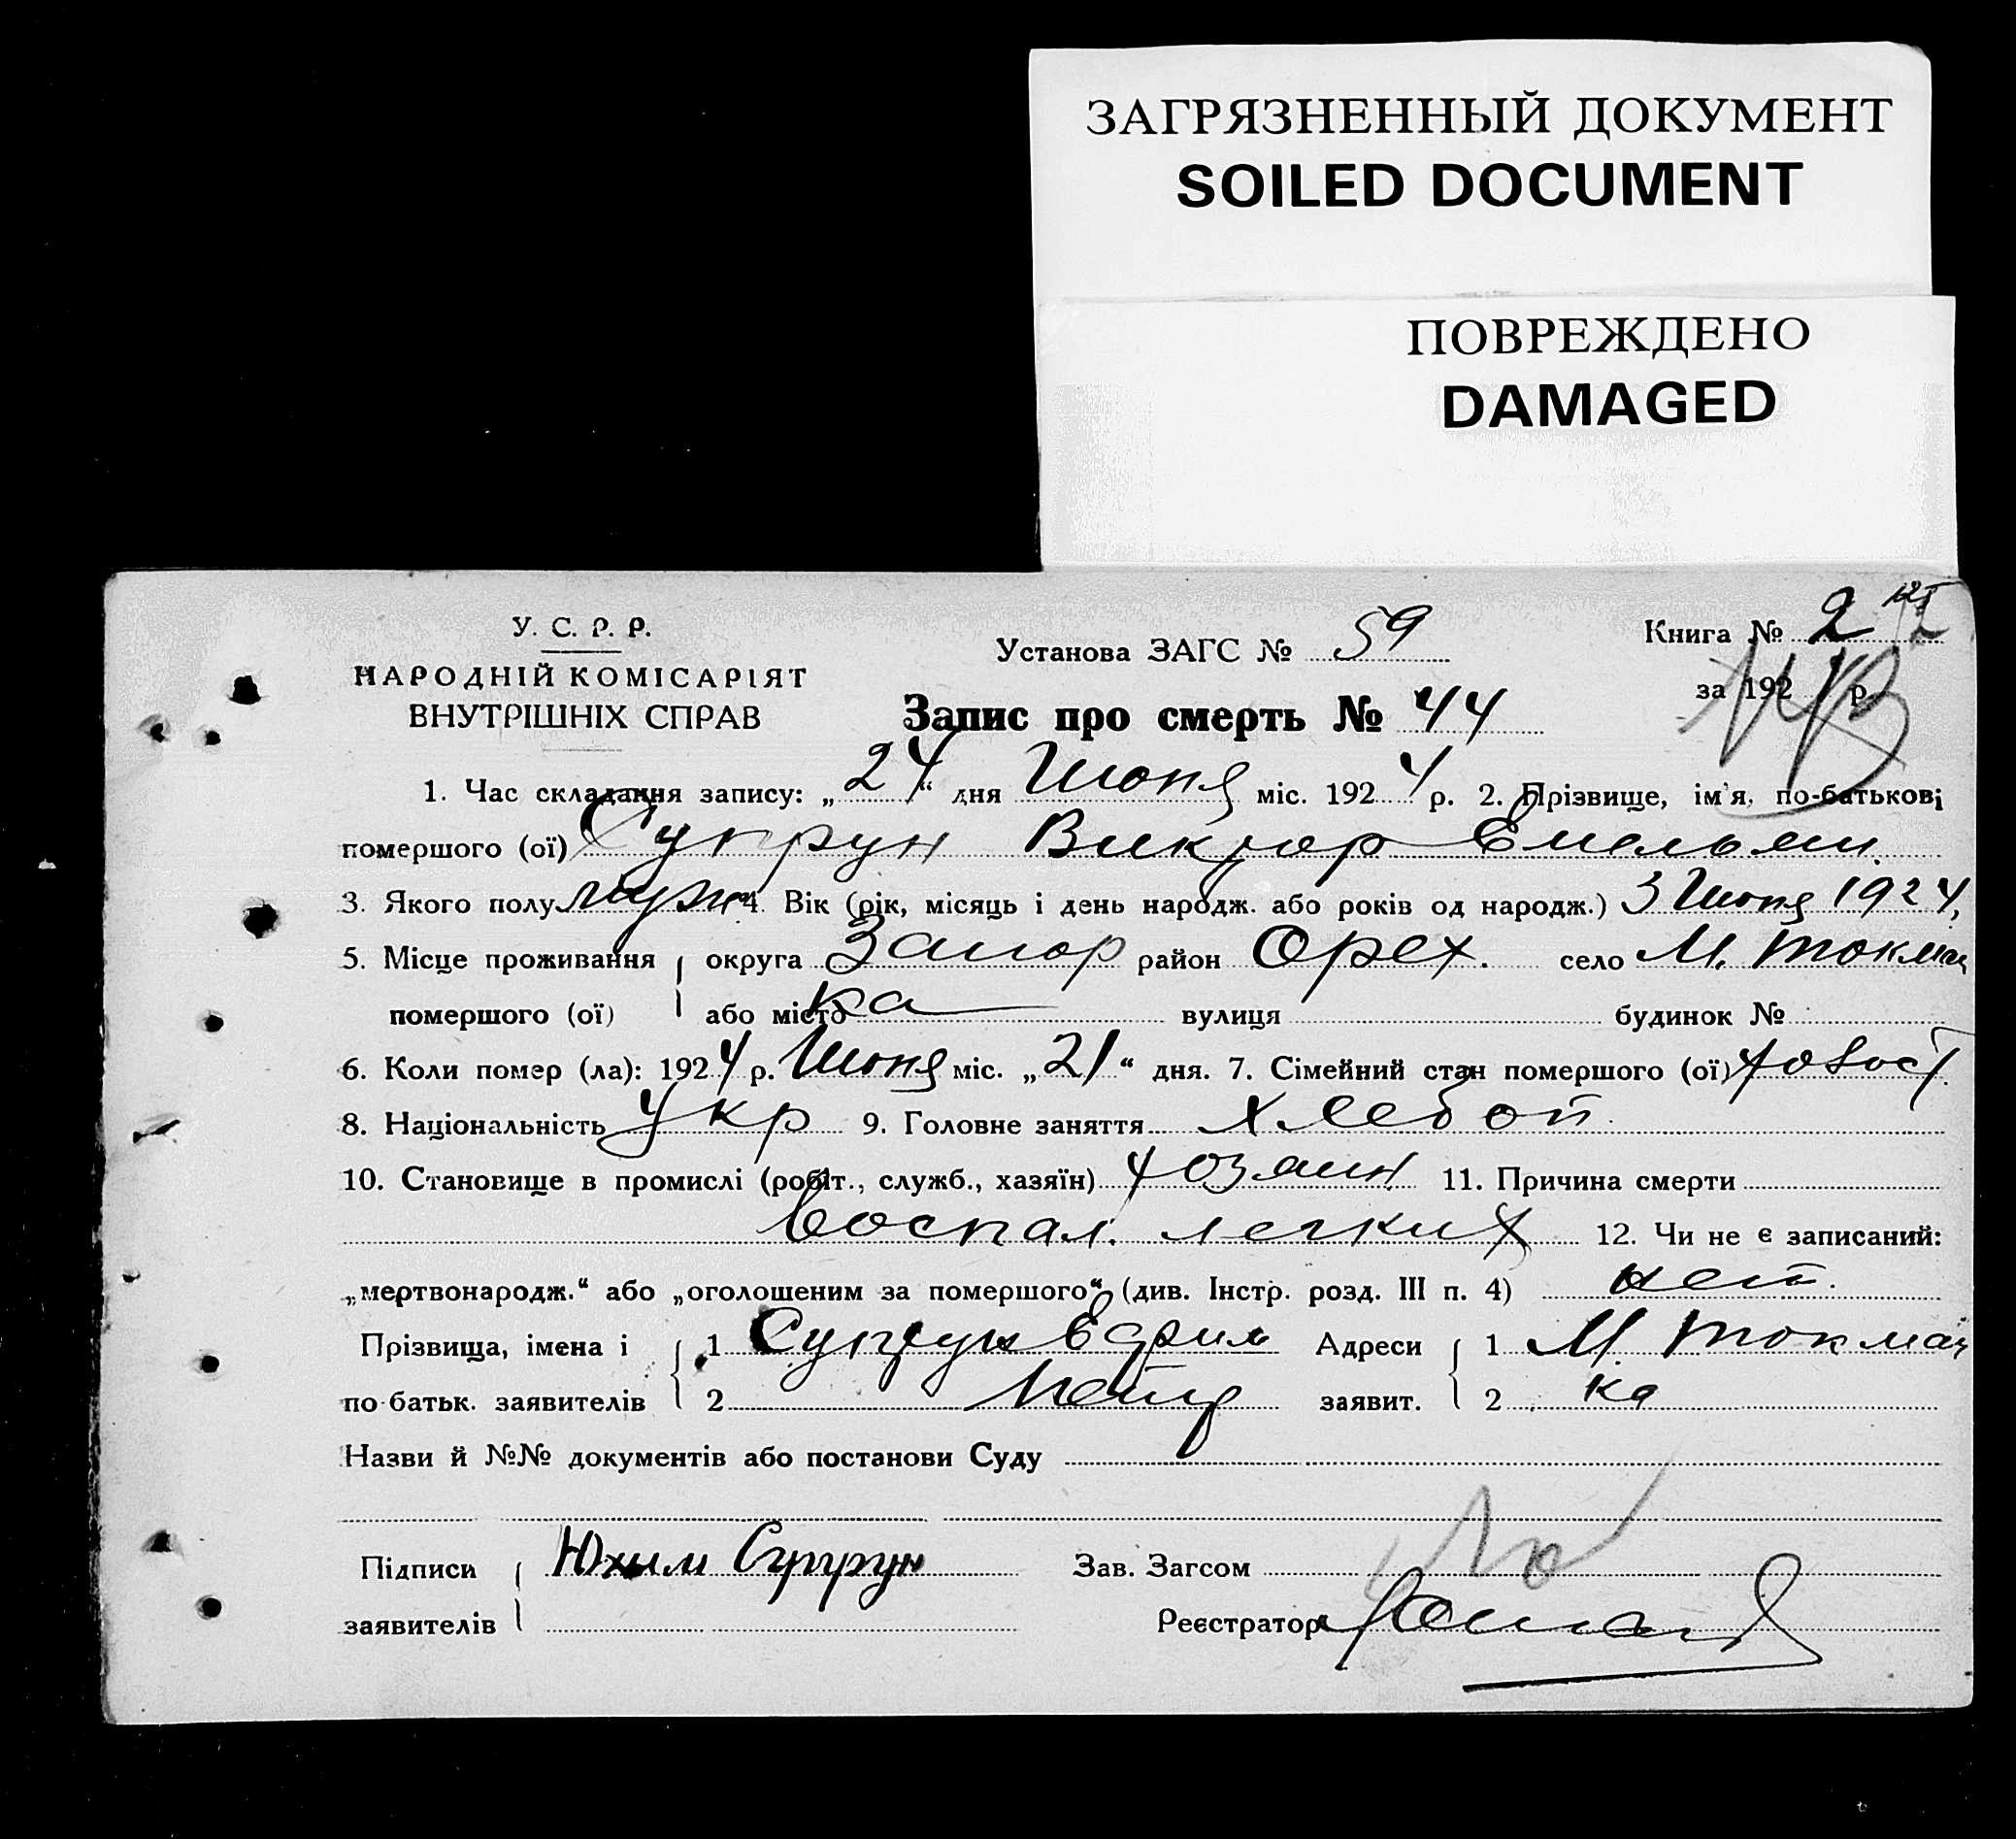 ЗАГРЯЗНЕННЫЙ ДОКУМЕНТ
SOILED DOCUMENT
ПОВРЕЖДЕНО
DAMAGED
У. С. Р. Р.
НАРОДНІЙ КОМІСАРІЯТ
ВНУТРІШНІХ СПРАВ
Установа ЗАГС № 59
Книга № 2
за 192 р.
Запис про смерть № 44
1. Час складання запису: „24“ дня Июня міс. 1924 р. 2. Прізвище, ім'я, по-батькові
помершого (ої) Супрун Виктор Емельян.
3. Якого полу муж 4. Вік (рік, місяць і день народж. або років од народж.) 3 Июня 1924,
5. Місце проживання округа Запор район Орех. село М. Токмач
помершого (ої) або місто ка вулиця будинок №
6. Коли помер (ла): 1924 р. Июня міс. „21“ дня. 7. Сімейний стан помершого (ої) холост.
8. Національність Укр 9. Головне заняття хлебоп.
10. Становище в промислі (робіт., служб., хазяїн) хозяин 11. Причина смерти
воспал. легких 12. Чи не є записаний:
„мертвонародж.“ або „оголошеним за помершого“ (див. Інстр. розд. III п. 4) нет.
Прізвища, імена і 1 Супрун Ефим Адреси 1 М. Токмач
по батьк. заявителів 2 Петр заявит. 2 ка
Назви й №№ документів або постанови Суду
Підписи Юхим Супрун Зав. Загсом
заявителів Реєстратор